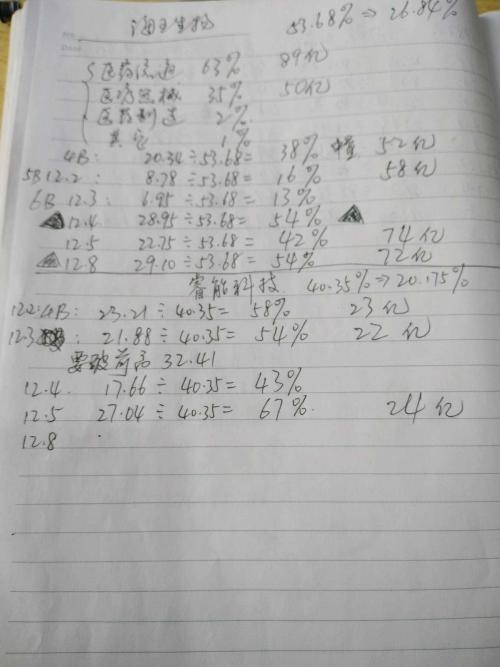 海王生物 53.68% ⇒ 26.84%
医药流通 63% 89亿
医疗器械 35% 50亿
医药制造 2%
其它 1%
4B: 20.34÷53.68= 38% 52亿
5B 12.2: 8.78÷53.68= 16% 58亿
6B 12.3: 6.95÷53.68= 13%
12.4 28.95÷53.68= 54%
12.5 22.75÷53.68= 42% 74亿
12.8 29.10÷53.68= 54% 72亿
睿能科技 40.35% ⇒ 20.175%
12.2: 4B: 23.21÷40.35= 58% 23亿
12.3 21.88÷40.35= 54% 22亿
要破前高 32.41
12.4 17.66÷40.35= 43%
12.5 27.04÷40.35= 67% 24亿
12.8